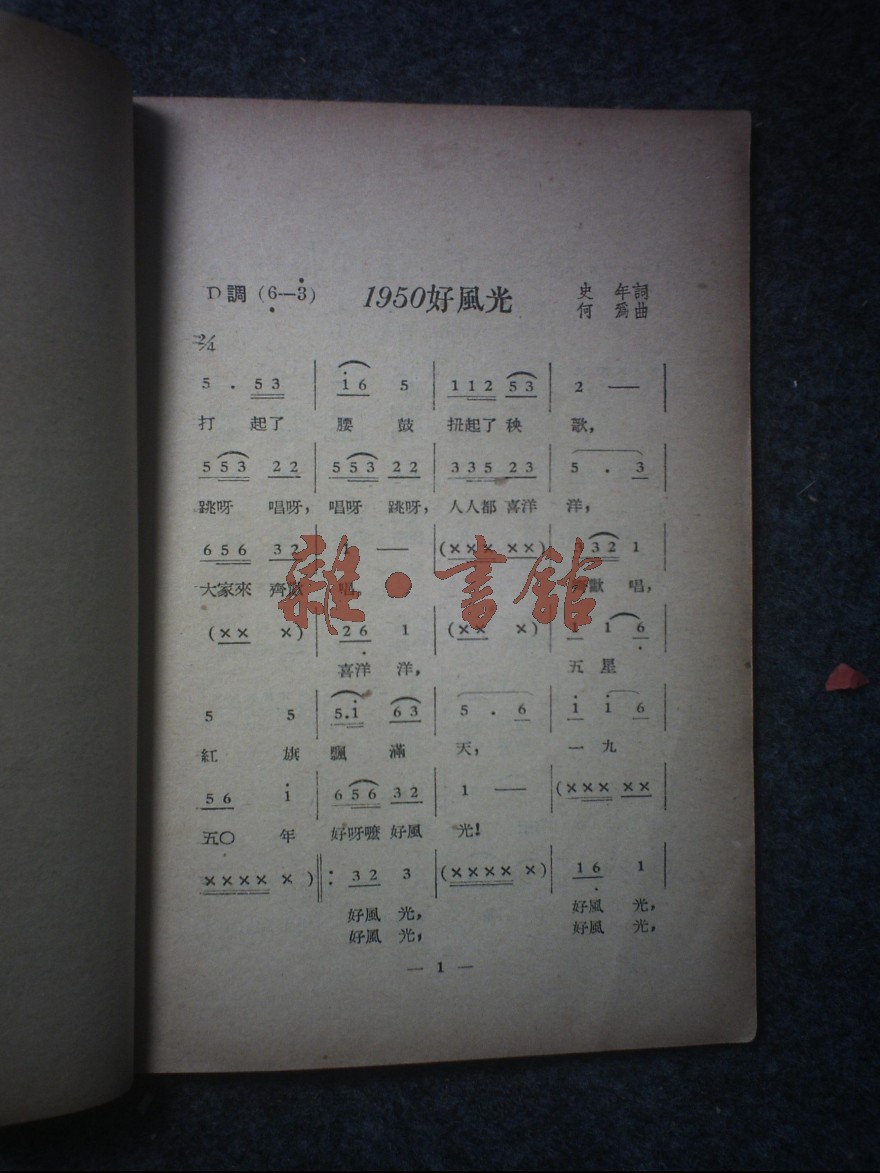 D調 (6—3) 1950好風光 史年詞
何爲曲
2/4
5 . 5 3 | i 6 5 | 1 1 2 5 3 | 2 — |
打 起了 腰 鼓 扭起了 秧 歌,
5 5 3 2 2 | 5 5 3 2 2 | 3 3 5 2 3 | 5 . 3 |
跳呀 唱呀, 唱呀 跳呀, 人人都 喜洋 洋,
6 5 6 3 2 | 1 — | (××× ××) | 3 3 2 1
大家來 齊歡 唱, 齊歡 唱,
(×× ×) | 2 6 1 | (×× ×) | 1 1 6
喜洋 洋, 五 星
5 5 | 5.i 6 3 | 5 . 6 | i i 6
紅 旗 飄 滿 天, 一 九
5 6 i | 6 5 6 3 2 | 1 — | (××× ××
五〇 年 好呀嚒 好風 光!
×××× ×) ‖: 3 2 3 | (×××× ×) | 1 6 1 |
好風 光, 好風 光,
好風 光, 好風 光,
— 1 —
雜·書館